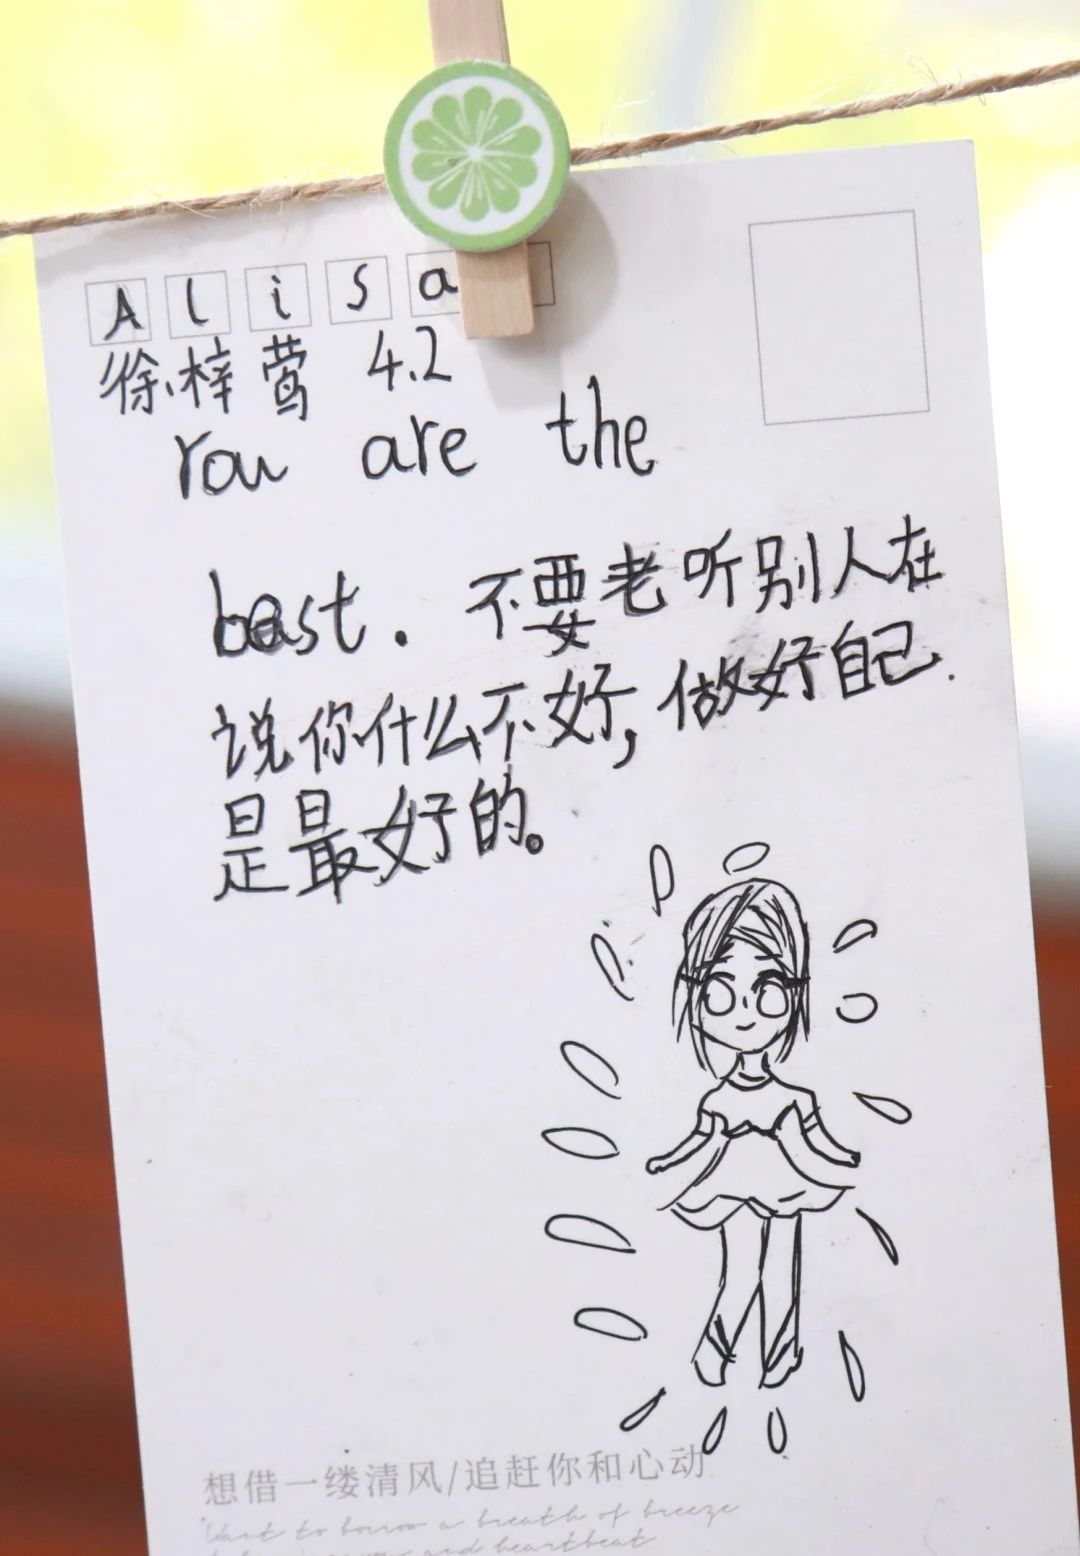 Alisa
徐梓莺 4.2
You are the
best. 不要老听别人在
说你什么不好,做好自己.
是最好的。
想借一缕清风/追赶你和心动
Want to borrow a breath of breeze
and heartbeat